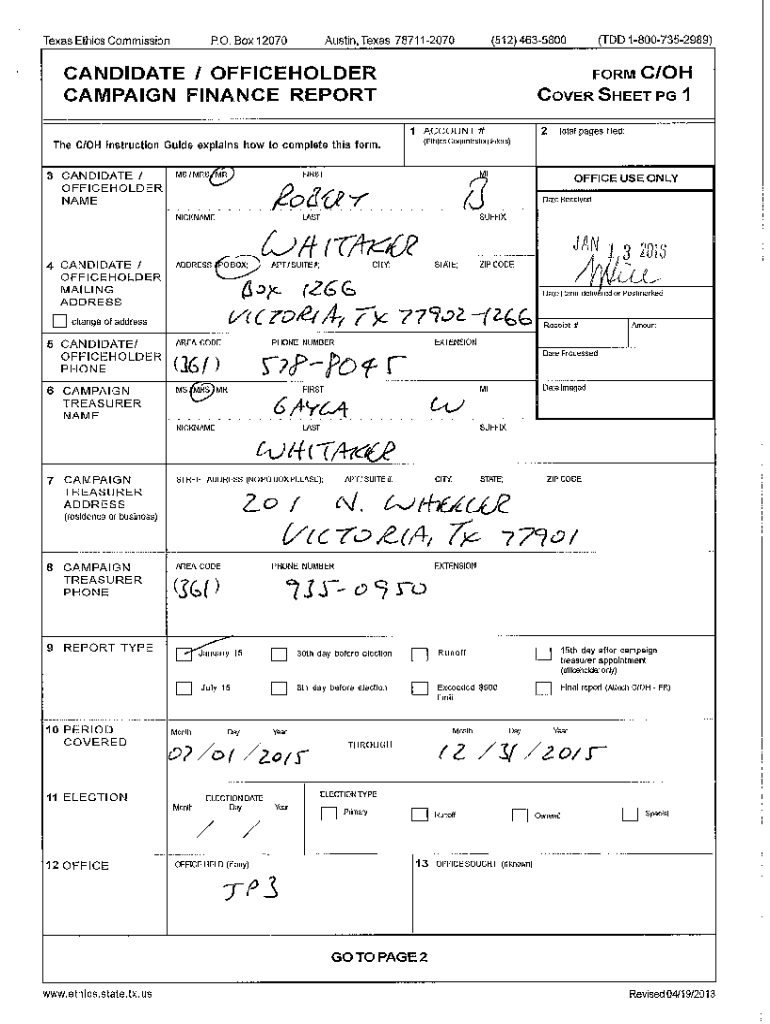 Texas Ethics Commission P.O. Box 12070 Austin, Texas 78711-2070 (512) 463-5800 (TDD 1-800-735-2989)
CANDIDATE / OFFICEHOLDER
CAMPAIGN FINANCE REPORT
FORM C/OH
COVER SHEET PG 1
The C/OH Instruction Guide explains how to complete this form.
1 ACCOUNT #
(Ethics Commission Filers)
2 Total pages filed:
3 CANDIDATE /
OFFICEHOLDER
NAME
MS / MRS / MR FIRST MI
ROBERT B
NICKNAME LAST SUFFIX
WHITAKER
OFFICE USE ONLY
Date Received
JAN 13 2015
4 CANDIDATE /
OFFICEHOLDER
MAILING
ADDRESS
change of address
ADDRESS / PO BOX; APT / SUITE #; CITY; STATE; ZIP CODE
BOX 1266
VICTORIA, TX 77902-1266
Date Hand-delivered or Postmarked
Receipt # Amount
5 CANDIDATE/
OFFICEHOLDER
PHONE
AREA CODE PHONE NUMBER EXTENSION
(361) 578-8045
Date Processed
6 CAMPAIGN
TREASURER
NAME
MS / MRS / MR FIRST MI
GAYLA W
NICKNAME LAST SUFFIX
WHITAKER
Date Imaged
7 CAMPAIGN
TREASURER
ADDRESS
(residence or business)
STREET ADDRESS (NO PO BOX PLEASE); APT / SUITE #; CITY; STATE; ZIP CODE
201 N. WHEELER
VICTORIA, TX 77901
8 CAMPAIGN
TREASURER
PHONE
AREA CODE PHONE NUMBER EXTENSION
(361) 935-0950
9 REPORT TYPE
January 15 30th day before election Runoff 15th day after campaign
treasurer appointment
(officeholder only)
July 15 8th day before election Exceeded $500
limit
Final report (Attach C/OH - FR)
10 PERIOD
COVERED
Month Day Year
07/01/2015
THROUGH
Month Day Year
12/31/2015
11 ELECTION
ELECTION DATE
Month Day Year
/ /
ELECTION TYPE
Primary Runoff General Special
12 OFFICE
OFFICE HELD (if any)
JP3
13 OFFICE SOUGHT (if known)
GO TO PAGE 2
www.ethics.state.tx.us Revised 04/19/2013